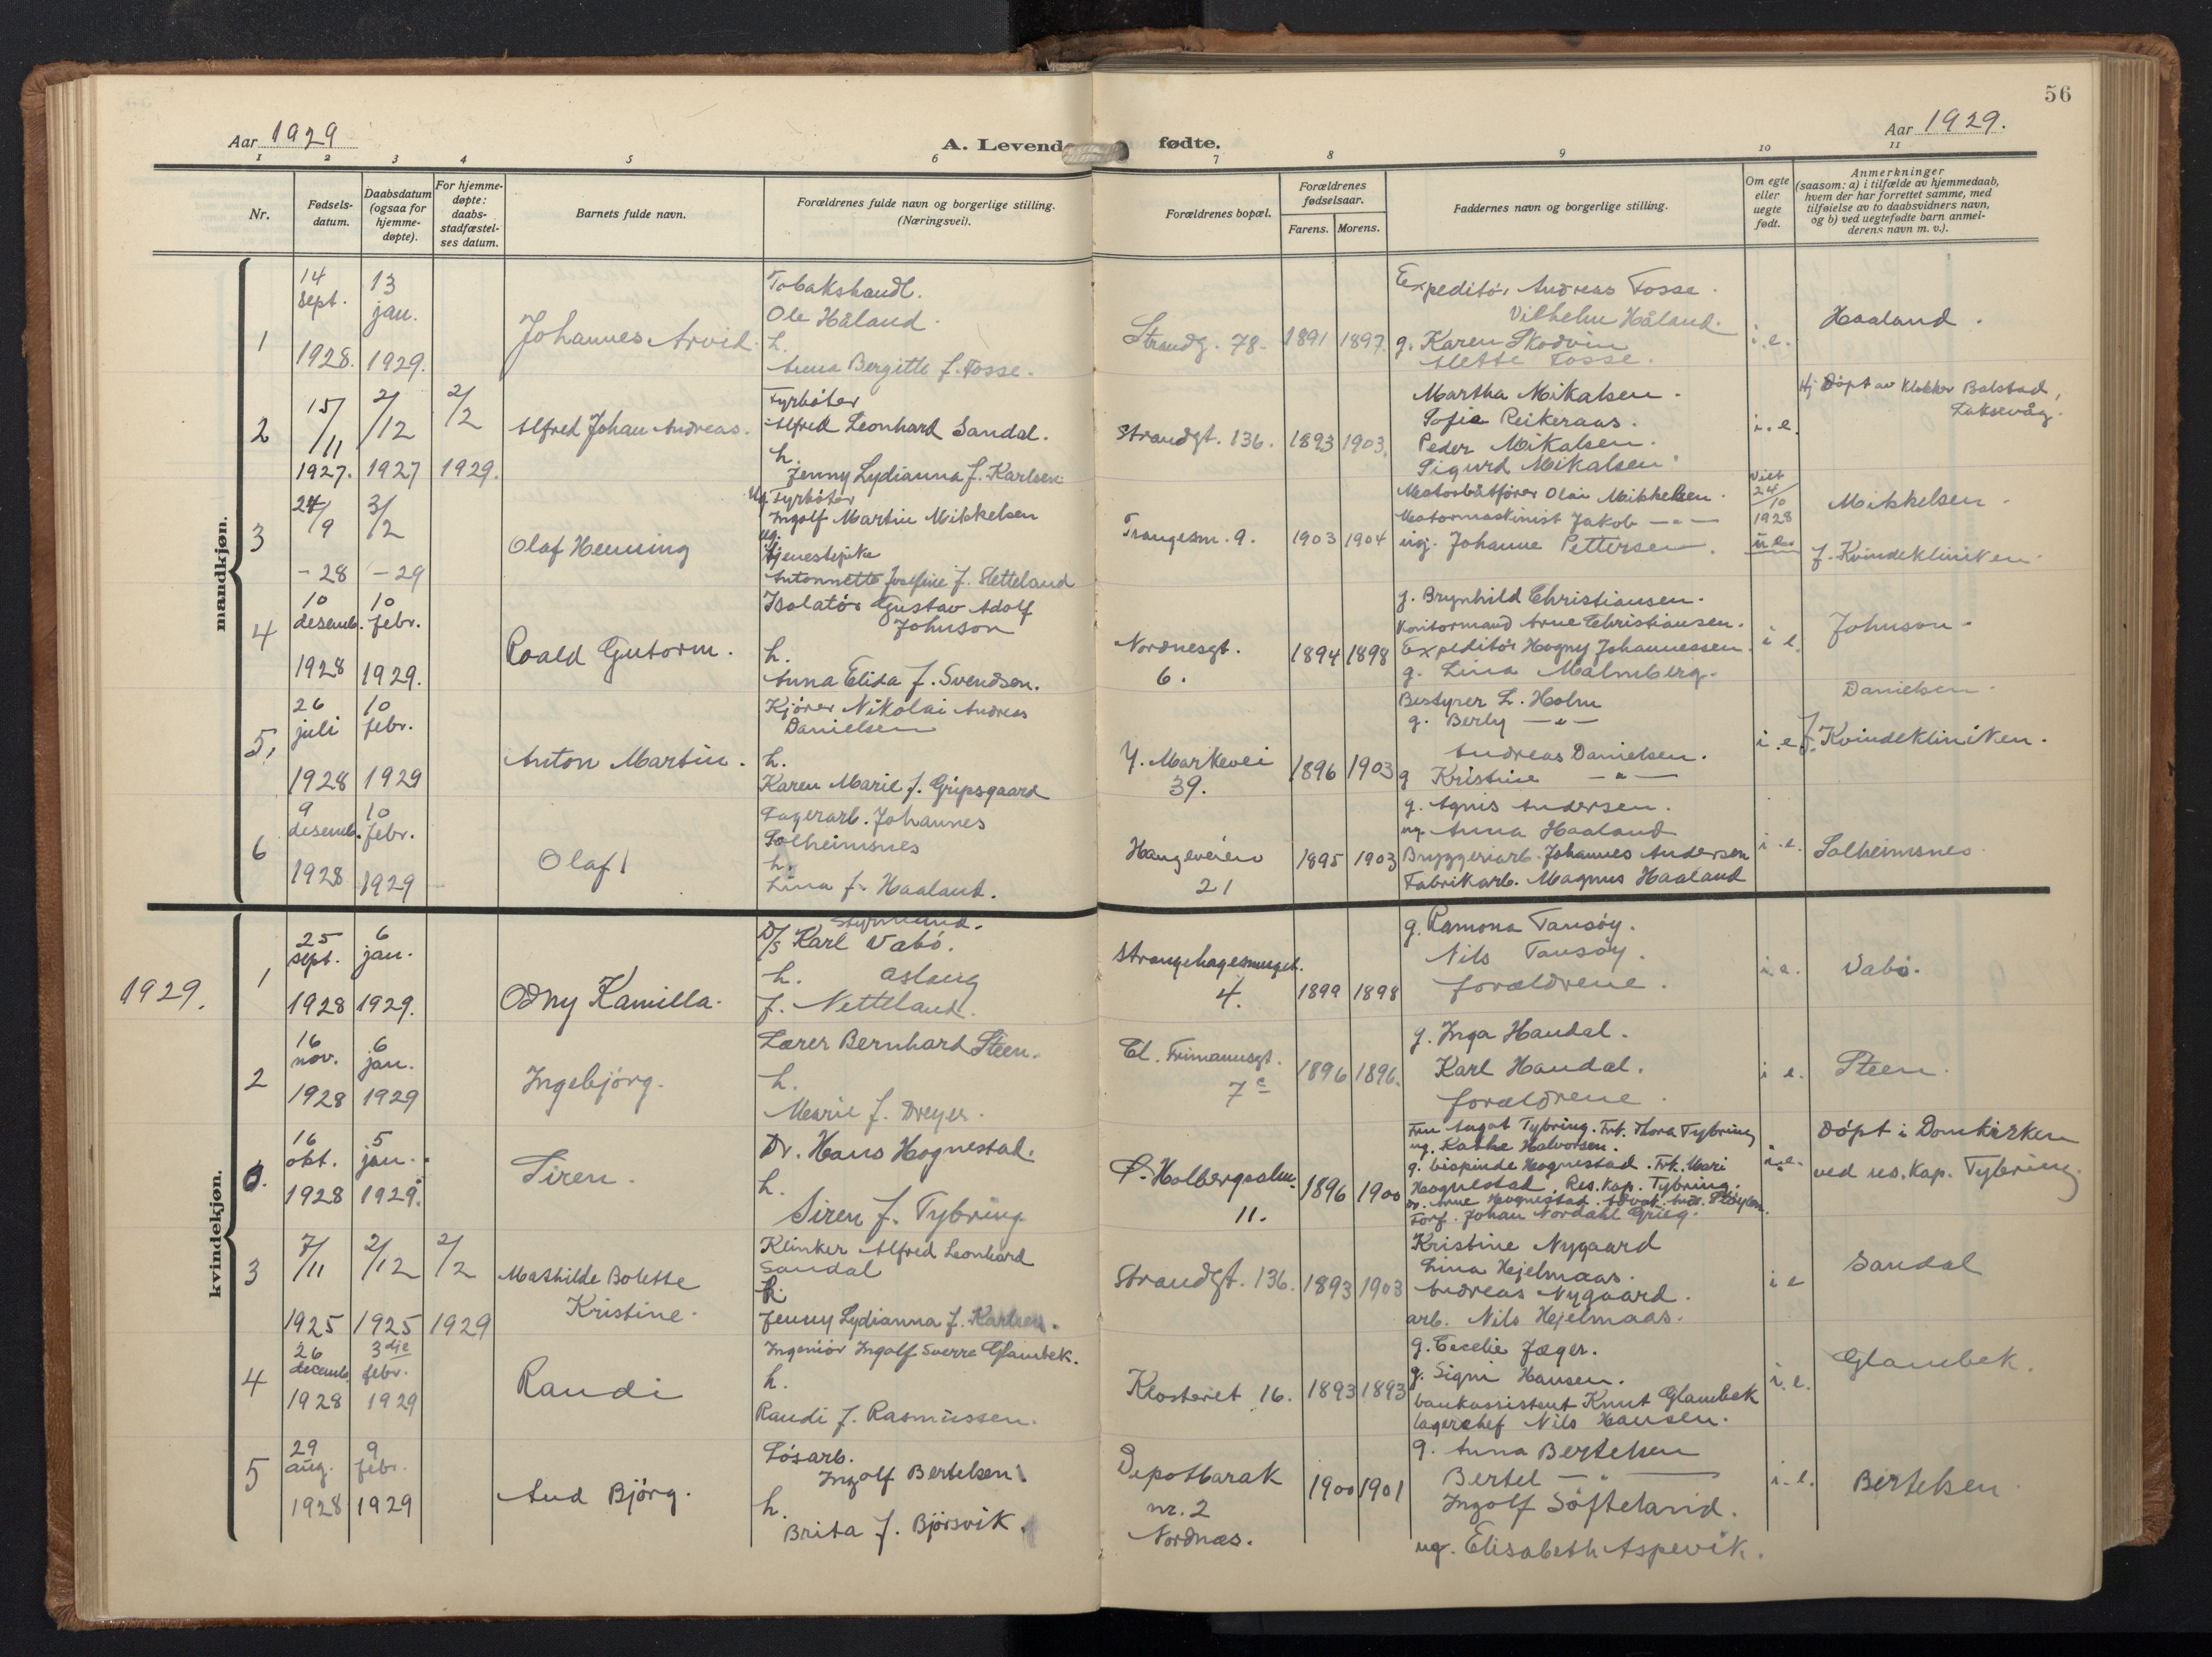 56
Aar 1929
Aar 1929.
A. Levende fødte.
1 2 3 4 5 6 7 8 9 10 11
Nr.
Fødsels-
datum.
Daabsdatum
(ogsaa for
hjemme-
døpte).
For hjemme-
døpte:
daabs-
stadfæstel-
ses datum.
Barnets fulde navn.
Forældrenes fulde navn og borgerlige stilling.
(Næringsvei).
Forældrenes bopæl.
Forældrenes
fødselsaar.
Farens. Morens.
Faddernes navn og borgerlige stilling.
Om egte
eller
uegte
født.
Anmerkninger
(saasom: a) i tilfælde av hjemmedaab,
hvem der har forrettet samme, med
tilføielse av to daabsvidners navn,
og b) ved uegtefødte barn anmel-
derens navn m. v.).
mandkjøn.
1
14
sept.
1928.
13
jan.
1929.
Johannes Arvid.
Tobakshandl.
Ole Håland.
h.
Anna Bergitte f. Fosse.
Strandg. 78.
1891 1897.
Expeditör Andreas Fosse.
Vilhelm Håland.
g. Karen Skodvin
Mette Fosse.
i.e.
Haaland.
2
15/11
1927.
2/12
1927
2/2
1929.
Alfred Johan Andreas.
Fyrböter
Alfred Leonhard Sandal.
h.
Jenny Lydianna f. Karlsen
Strandgt. 136.
1893 1903.
Martha Mikalsen.
Sofie Reikeraas.
Peder Mikalsen.
Sigurd Mikalsen.
i.e.
Hj döpt av klokker Bolstad,
Laksevåg.
3
24/9
-28
3/2
-29
Olaf Henning
Ug. Fyrböter
Ingolf Martin Mikkelsen
ug.
tjenestepike
Antonnette Josefine f. Sletteland
Trangesm. 9.
1903 1904
Motorbåtförer Olai Mikkelsen.
Motormaskinist Jakob — " —
ug. Johanne Pettersen.
Viet
24/10
1928
Mikkelsen
f. Kvindekliniken.
4
10
desemb.
1928
10
febr.
1929.
Roald Gutorm.
Isolatör Gustav Adolf
Johnson
h.
Anna Elida f. Svendsen.
Nordnesgt.
6.
1894 1898
g. Brynhild Christiansen.
Kontormand Arne Christiansen.
Expeditör Hagny Johannessen
g. Lina Malmberg.
i e.
Johnson.
5.
26
juli
1928
10
febr.
1929
Anton Martin.
Kjörer Nikolai Andreas
Danielsen
h.
Karen Marie f. Gripsgaard
Y. Markevei
39.
1896 1903
Bestyrer L. Holm
g. Berly — " —
Andreas Danielsen.
g Kristine — " —
i.e.
Danielsen.
f. Kvindekliniken.
6
9
desemb.
1928
10
febr.
1929
Olaf
Lagerarb. Johannes
Solheimsnes
h.
Lina f. Haaland.
Haugeveien
21
1895 1903
g. Agnis Andersen.
ug. Anna Haaland
Bryggeriarb. Johannes Andersen
Fabrikarb. Magnus Haaland
i.e.
Solheimsnes
kvindekjøn.
1929.
1
25
sept.
1928
6
jan.
1929.
Odny Kamilla.
Styrmand.
D/s Karl Vabö.
h. Aslaug
f. Netteland.
Strangehagesmuget.
4.
1899 1898
g. Ramona Tansöy.
Nils Tansöy.
forældrene.
i.e.
Vabö.
2
16
nov.
1928
6
jan.
1929
Ingebjörg.
Lærer Bernhard Steen.
h.
Marie f. Dreyer.
Cl. Frimannsgt.
7c
1896 1896.
g. Inga Handal.
Karl Handal.
forældrene.
i e.
Steen.
16
okt.
1928
5
jan.
1929.
Siren.
Dr. Hans Hognestad.
h.
Siren f. Tybring.
L. Holbergsalm.
11.
1896 1900
Fru Aagot Tybring. Frk. Thora Tybring
ug. Kathe Halvorsen.
g. bispinde Hognestad. Frk. Mari
Hognestad. Res. kap. Tybring.
Dr. Arne Hognestad.
Forf. Johan Nordahl Grieg.
i.e.
Döpt i Domkirken
ved res. kap. Tybring.
3
7/11
1925
2/12
1925
2/2
1929
Mathilde Bolette
Kristine.
Klinker Alfred Leonhard
Sandal
h.
Jenny Lydianna f. Karlsen.
Strandgt. 136.
1893 1903
Kristine Nygaard
Lina Hejelmaas.
Andreas Nygaard.
arb. Nils Hejelmaas.
i e
Sandal
4
26
decemb.
1928
3dje
febr.
1929
Randi
Ingeniör Ingolf Sverre Glambek.
h.
Randi f. Rasmussen.
Klosteret 16.
1893 1893
g. Cecelie Jæger.
g. Signi Hansen.
bankassistent Knut Glambek
lagerchef Nils Hansen.
i.e.
Glambek.
5
29
aug.
1928
9
febr.
1929
Aud Björg.
Lösarb.
Ingolf Bertelsen
h.
Brita f. Björsvik.
Depotbarak
nr. 2
Nordnæs.
1900 1901
g. Anna Bertelsen
Bertel — " —
Ingolf Söfteland.
ug. Elisabeth Aspevik.
i.e.
Bertelsen.